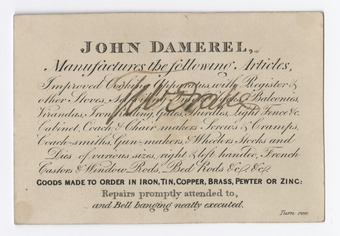 JOHN DAMEREL,
Manufactures the following Articles,
Improved Cooking Apparatus, with Register &
other Stoves, Balconies,
Virandus, Iron Railing, Gates, Hurdles, Light Fence &c.
Cabinet, Coach & Chair-makers Screws & Cramps,
Coach-smiths, Gun-makers, & Wheelers Stocks and
Dies of various sizes, right & left handed, French
Castors & Window Rods, Bed Rods &c. &c.
GOODS MADE TO ORDER IN IRON, TIN, COPPER, BRASS, PEWTER OR ZINC:
Repairs promptly attended to,
and Bell hanging neatly executed.
Turn over